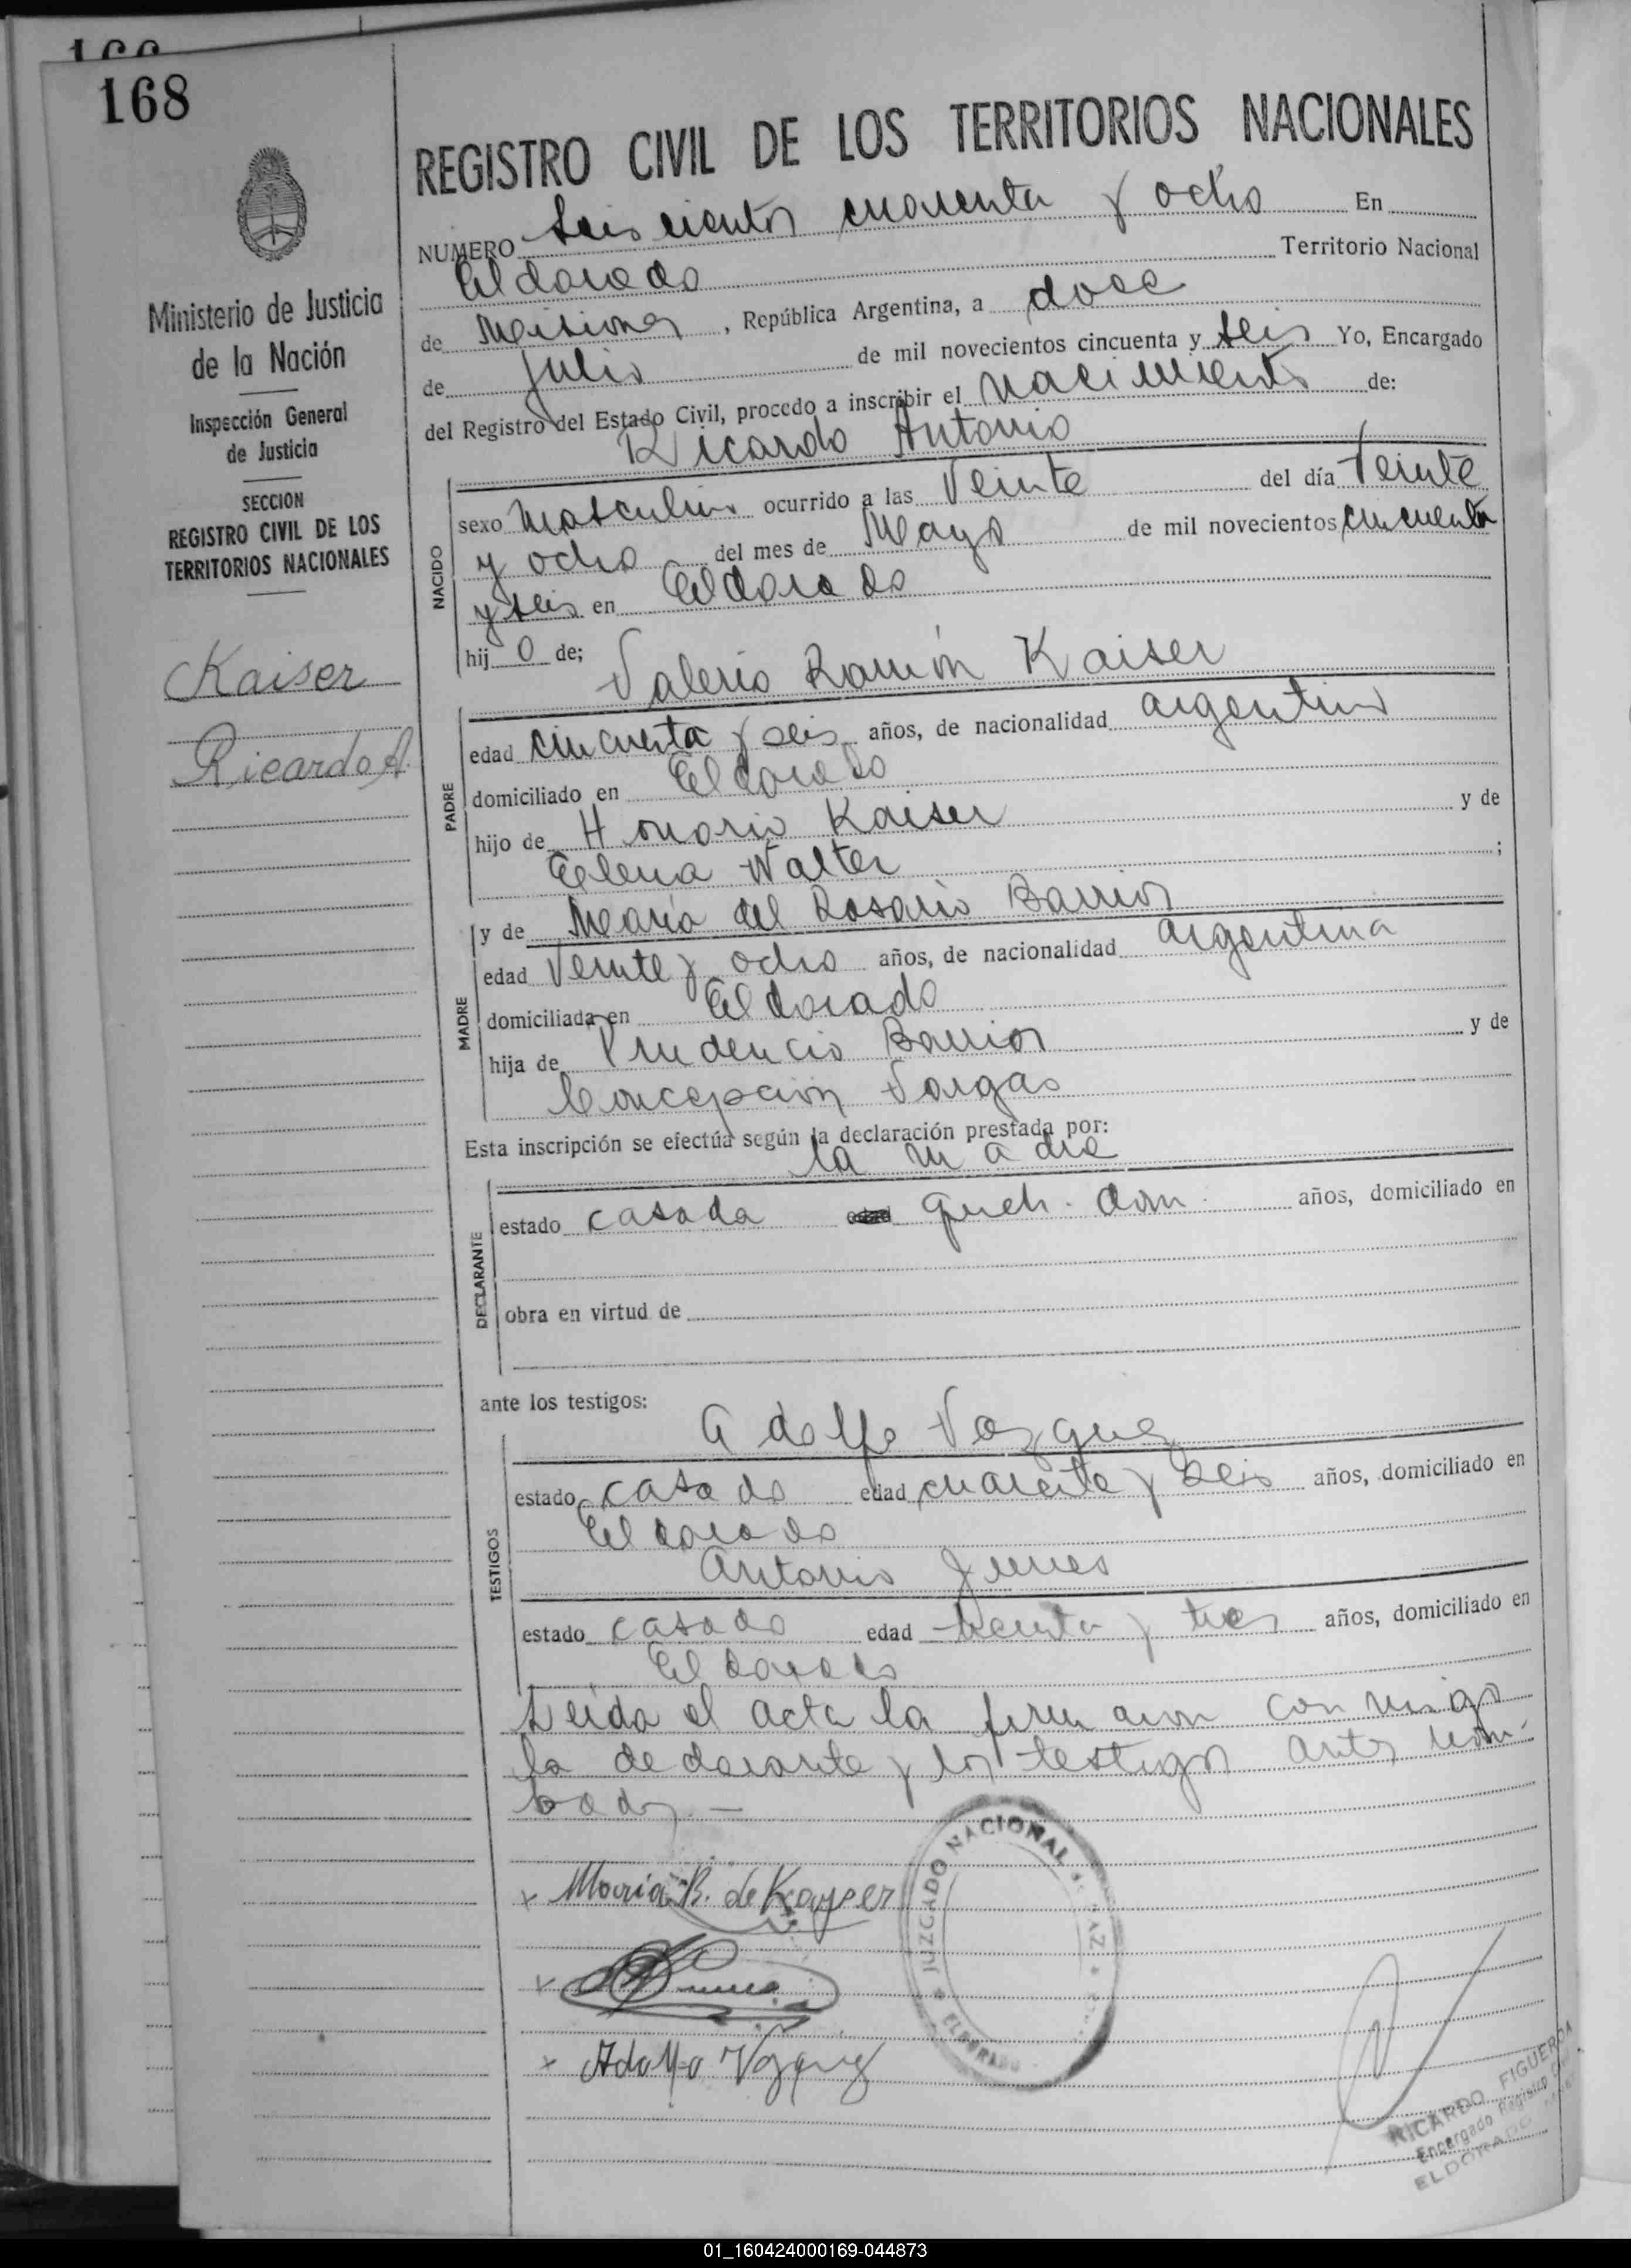 168
REGISTRO CIVIL DE LOS TERRITORIOS NACIONALES
Ministerio de Justicia
de la Nación
Inspección General
de Justicia
SECCION
REGISTRO CIVIL DE LOS
TERRITORIOS NACIONALES
Kaiser
Ricardo A.
NUMERO Seiscientos cuarenta y ocho En
Eldorado Territorio Nacional
de Misiones, República Argentina, a doce
de Julio de mil novecientos cincuenta y seis Yo, Encargado
del Registro del Estado Civil, procedo a inscribir el nacimiento de:
Ricardo Antonio
NACIDO
sexo Masculino ocurrido a las Veinte del día Veinte
y ocho del mes de Mayo de mil novecientos cincuenta
y seis en Eldorado
hij o de;
Valerio Ramón Kaiser
PADRE
edad cincuenta y seis años, de nacionalidad argentino
domiciliado en Eldorado
hijo de Honorio Kaiser y de
Elena Walter ;
MADRE
y de María del Rosario Barrios
edad Veinte y ocho años, de nacionalidad argentina
domiciliada en Eldorado
hija de Prudencio Barrios y de
Concepción Vargas
Esta inscripción se efectúa según la declaración prestada por:
la madre
DECLARANTE
estado casada edad dom. años, domiciliado en
obra en virtud de
ante los testigos:
Adolfo Vazquez
TESTIGOS
estado casado edad cuarenta y seis años, domiciliado en
Eldorado
Antonio
estado casado edad treinta y tres años, domiciliado en
Eldorado
Leída el acta la firmaron conmigo
la declarante y los testigos antes nom-
bados.—
x Maria B. de Kayser
x
x Adolfo Vazquez
JUZGADO NACIONAL DE PAZ
ELDORADO
RICARDO FIGUEROA
Encargado Registro
ELDORADO
01_160424000169-044873